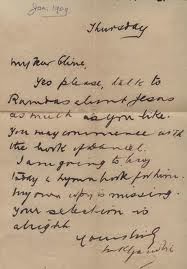 Jan. 1909
Thursday
My dear Olive,
Yes please, talk to
Ramdas about Jesus
as much as you like.
You may commence with
the book of Daniel.
I am going to buy
today a hymn book for him.
My own copy is missing.
Your selection is
alright
Yours truly
MKGandhi